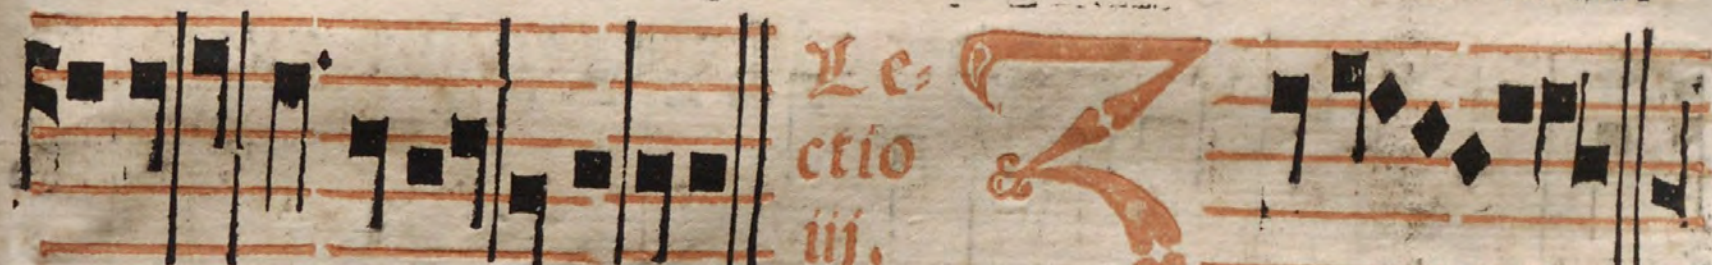 Le-
ctio
iij.